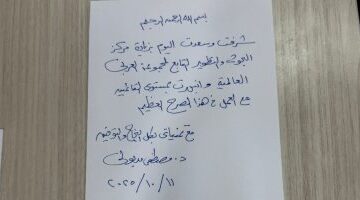 بسم الله الرحمن الرحيم
شرفت وسعدت اليوم بزيارة مركز
البحوث والتطوير التابع لمجموعة العربى
العالمية وانبهرت بمستوى التقنية
مع العمل فى هذا الصرح العظيم
مع تمنياتى بكل النجاح والتوفيق
د. مصطفى مدبولى
٢٠٢٥/١٠/١١